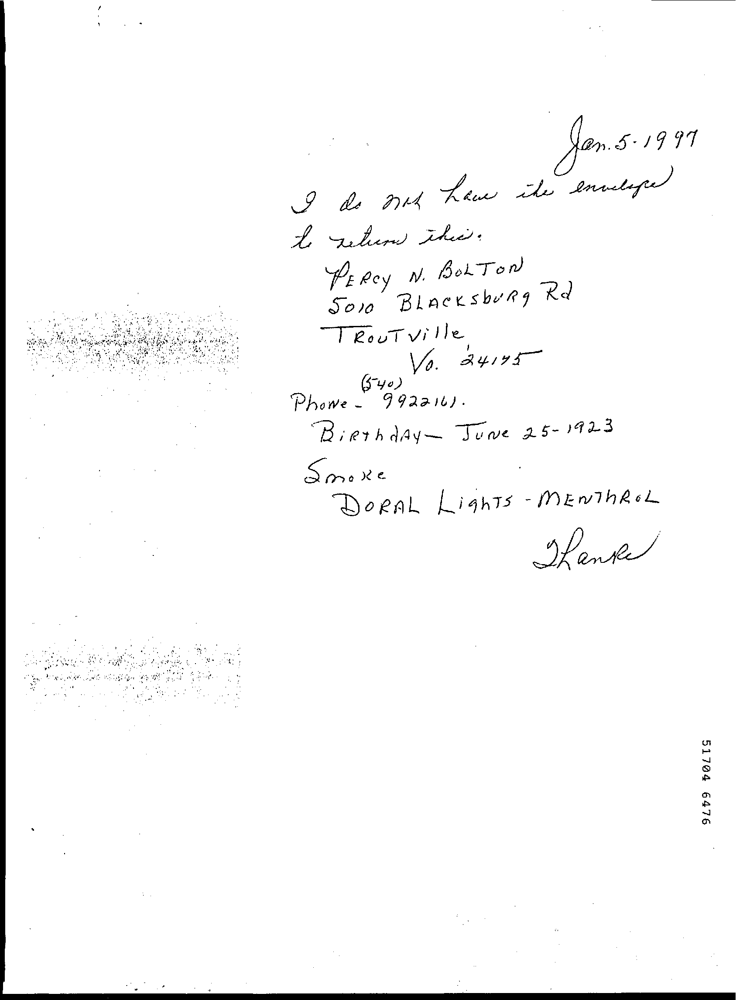 Jan. 5 - 1997
I do not have the envelope
to return this.
PERCY N. BOLTON
5010 BLACKSBURG Rd
TROUTVille,
Va. 24175
(540)
Phone - 9922161.
BIRTHDAY - JUNE 25 - 1923
Smoke
DORAL LIGHTS - MENTHROL
Thanks
51704 6476